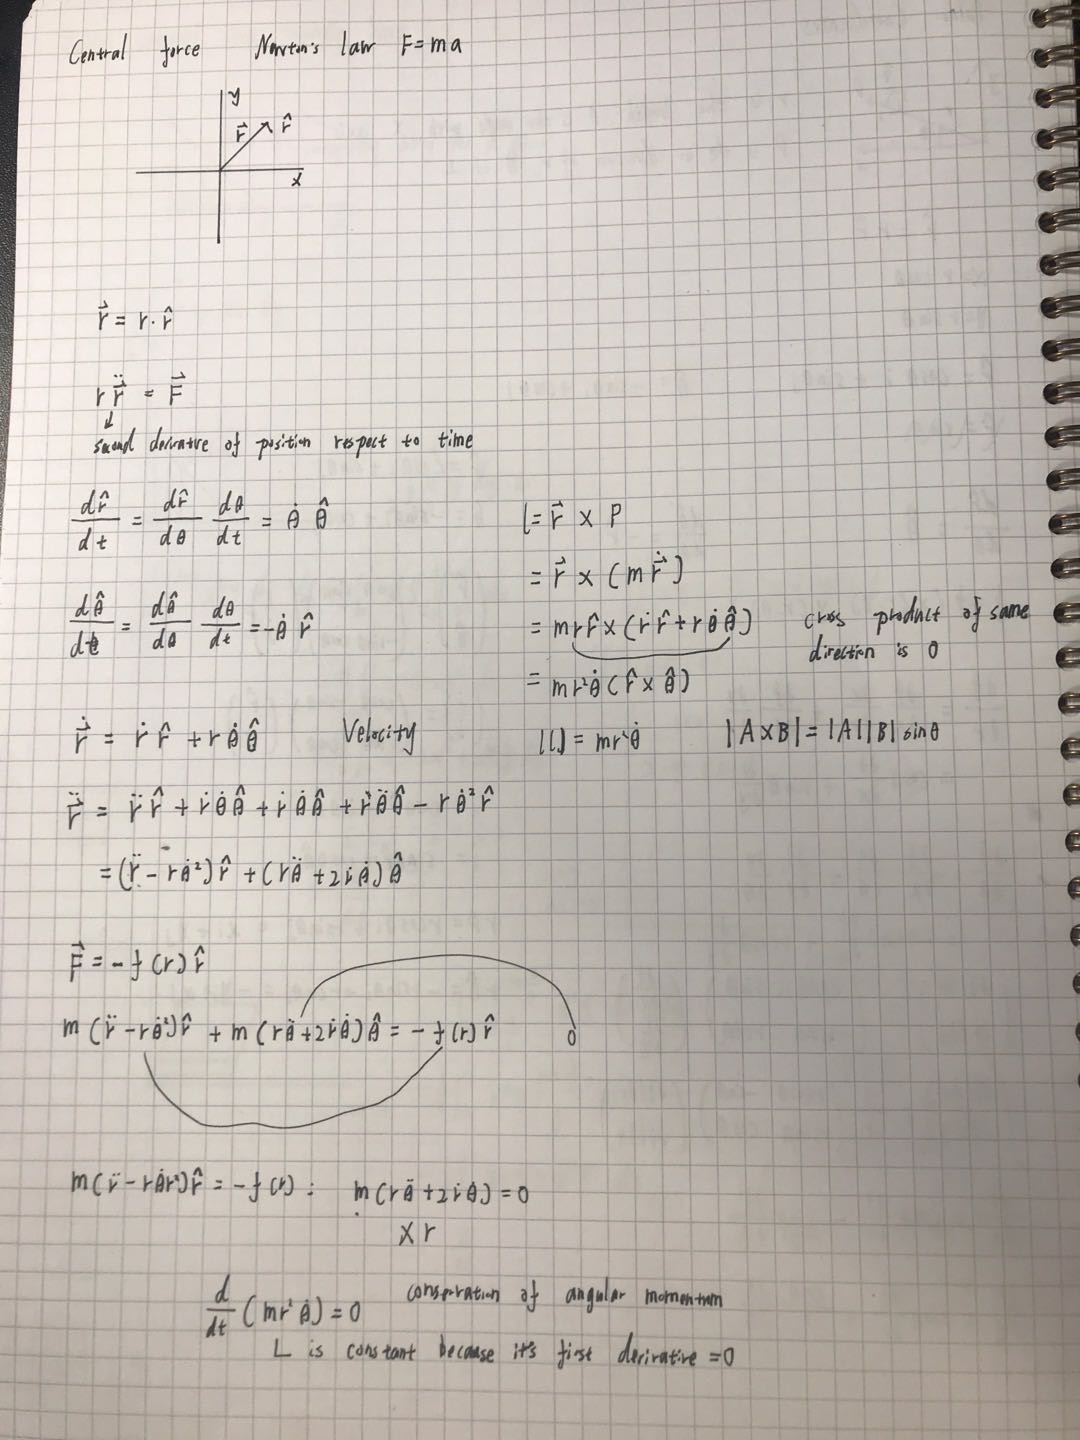 Central force Newton's law F=ma
y
r⃗ r̂
x
r⃗ = r · r̂
r r⃗̈ = F⃗
second derivative of position respect to time
dr̂/dt = dr̂/dθ dθ/dt = θ̇ θ̂
dθ̂/dt = dθ̂/dθ dθ/dt = -θ̇ r̂
r⃗̇ = ṙ r̂ + r θ̇ θ̂ Velocity
r⃗̈ = r̈ r̂ + ṙ θ̇ θ̂ + ṙ θ̇ θ̂ + r θ̈ θ̂ - r θ̇² r̂
= (r̈ - rθ̇²) r̂ + (rθ̈ + 2ṙθ̇) θ̂
l = r⃗ × P
= r⃗ × (m r⃗̇)
= m r r̂ × (ṙ r̂ + r θ̇ θ̂) cross product of same
direction is 0
= mr²θ̇ (r̂ × θ̂)
|L| = mr²θ̇ |A×B| = |A||B| sinθ
F⃗ = -f(r) r̂
m (r̈ - rθ̇²) r̂ + m (rθ̈ + 2ṙθ̇) θ̂ = -f(r) r̂ 0
m(r̈ - rθ̇r²) r̂ = -f(r) : m(rθ̈ + 2ṙθ̇) = 0
× r
d/dt (mr²θ̇) = 0 conservation of angular momentum
L is constant because it's first derivative = 0